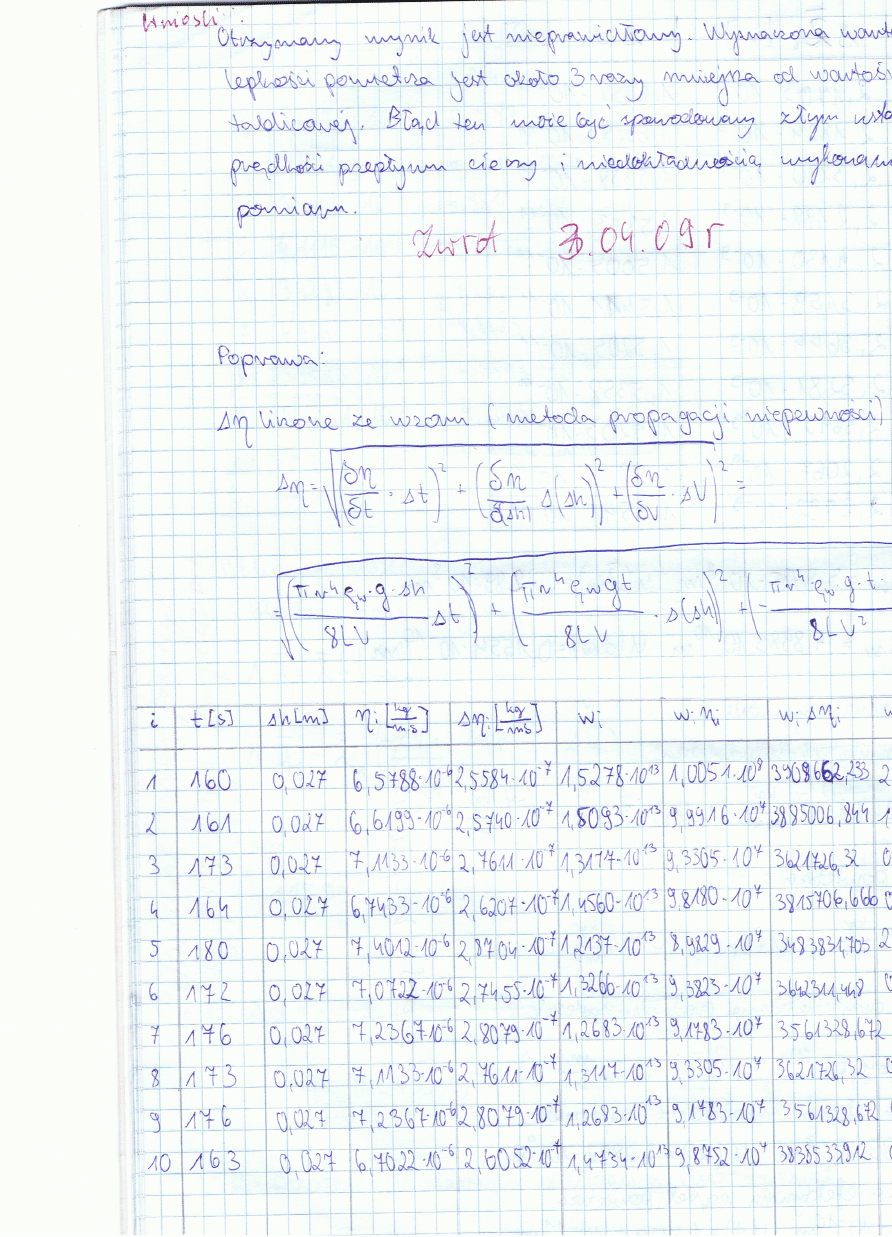 Wnioski:
Otrzymany wynik jest nieprawidłowy. Wyznaczona wart
lepkości powietrza jest około 3 razy mniejsza od wartoś
tablicowej. Błąd ten może być spowodowany złym usta
prędkości przepływu cieczy i niedokładnością wykonan
pomiaru.
Zwrot 3.04.09r
Poprawa:
Δη liczone ze wzoru (metoda propagacji niepewności)
Δη = √((δη/δt · Δt)² + (δη/δ(Δh) Δ(Δh))² + (δη/δV · ΔV)²) =
= √((πr⁴ρw·g·Δh/8LV Δt)² + (πr⁴ρwgt/8LV · Δ(Δh))² + (-πr⁴·ρw·g·t·/8LV²
i t[s] Δh[m] ηi [kg/ms] Δηi [kg/ms] wi wi ηi wi Δηi w
1 160 0,027 6,5788·10⁻⁶ 2,5584·10⁻⁷ 1,5278·10¹³ 1,0051·10⁸ 3908662,233 2
2 161 0,027 6,6199·10⁻⁶ 2,5740·10⁻⁷ 1,5093·10¹³ 9,9916·10⁷ 3885006,844 1
3 173 0,027 7,1133·10⁻⁶ 2,7611·10⁻⁷ 1,3117·10¹³ 9,3305·10⁷ 3621726,32 0
4 164 0,027 6,7433·10⁻⁶ 2,6207·10⁻⁷ 1,4560·10¹³ 9,8180·10⁷ 3815706,666 0
5 180 0,027 7,4012·10⁻⁶ 2,8704·10⁻⁷ 1,2137·10¹³ 8,9829·10⁷ 3483831,703 2
6 172 0,027 7,0722·10⁻⁶ 2,7455·10⁻⁷ 1,3266·10¹³ 9,3823·10⁷ 3642311,448 0
7 176 0,027 7,2367·10⁻⁶ 2,8079·10⁻⁷ 1,2683·10¹³ 9,1783·10⁷ 3561328,672
8 173 0,027 7,1133·10⁻⁶ 2,7611·10⁻⁷ 1,3117·10¹³ 9,3305·10⁷ 3621726,32 0
9 176 0,027 7,2367·10⁻⁶ 2,8079·10⁻⁷ 1,2683·10¹³ 9,1783·10⁷ 3561328,672
10 163 0,027 6,7022·10⁻⁶ 2,6052·10⁻⁷ 1,4734·10¹³ 9,8752·10⁷ 3838533,912 0